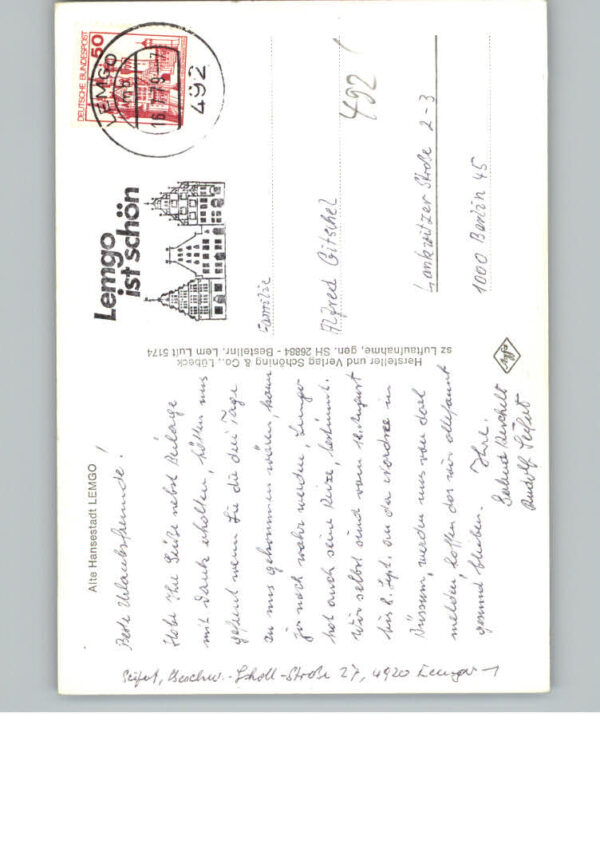 Alte Hansestadt LEMGO
Beste Urlaubsfreunde!
Habe Ihre Grüße nebst Beilage
mit Dank erhalten, hätten uns
gefreut wenn Sie die drei Tage
zu uns gekommen wären kann
ja noch wahr werden, Lemgo
hat auch seine Reize, bestimmt.
Wir selbst sind vom 18. August
bis 8. Sept. an der Nordsee in
Büsum, werden uns von dort
melden, hoffen das wir allesamt
gesund bleiben. Ihre
Rudolf Seifert
Seifert, Geschw.-Scholl-Straße 27, 4920 Lemgo-1
Hersteller und Verlag Schöning & Co., Lübeck
sz Luftaufnahme, gen. SH 26884 - Bestellnr. Lem Luft 5174
DEUTSCHE BUNDESPOST
50
LEMGO
16.7.79-
492
Lemgo
ist schön
492
Familie
Alfred Gitschel
Lankwitzer Straße 2-3
1000 Berlin 45